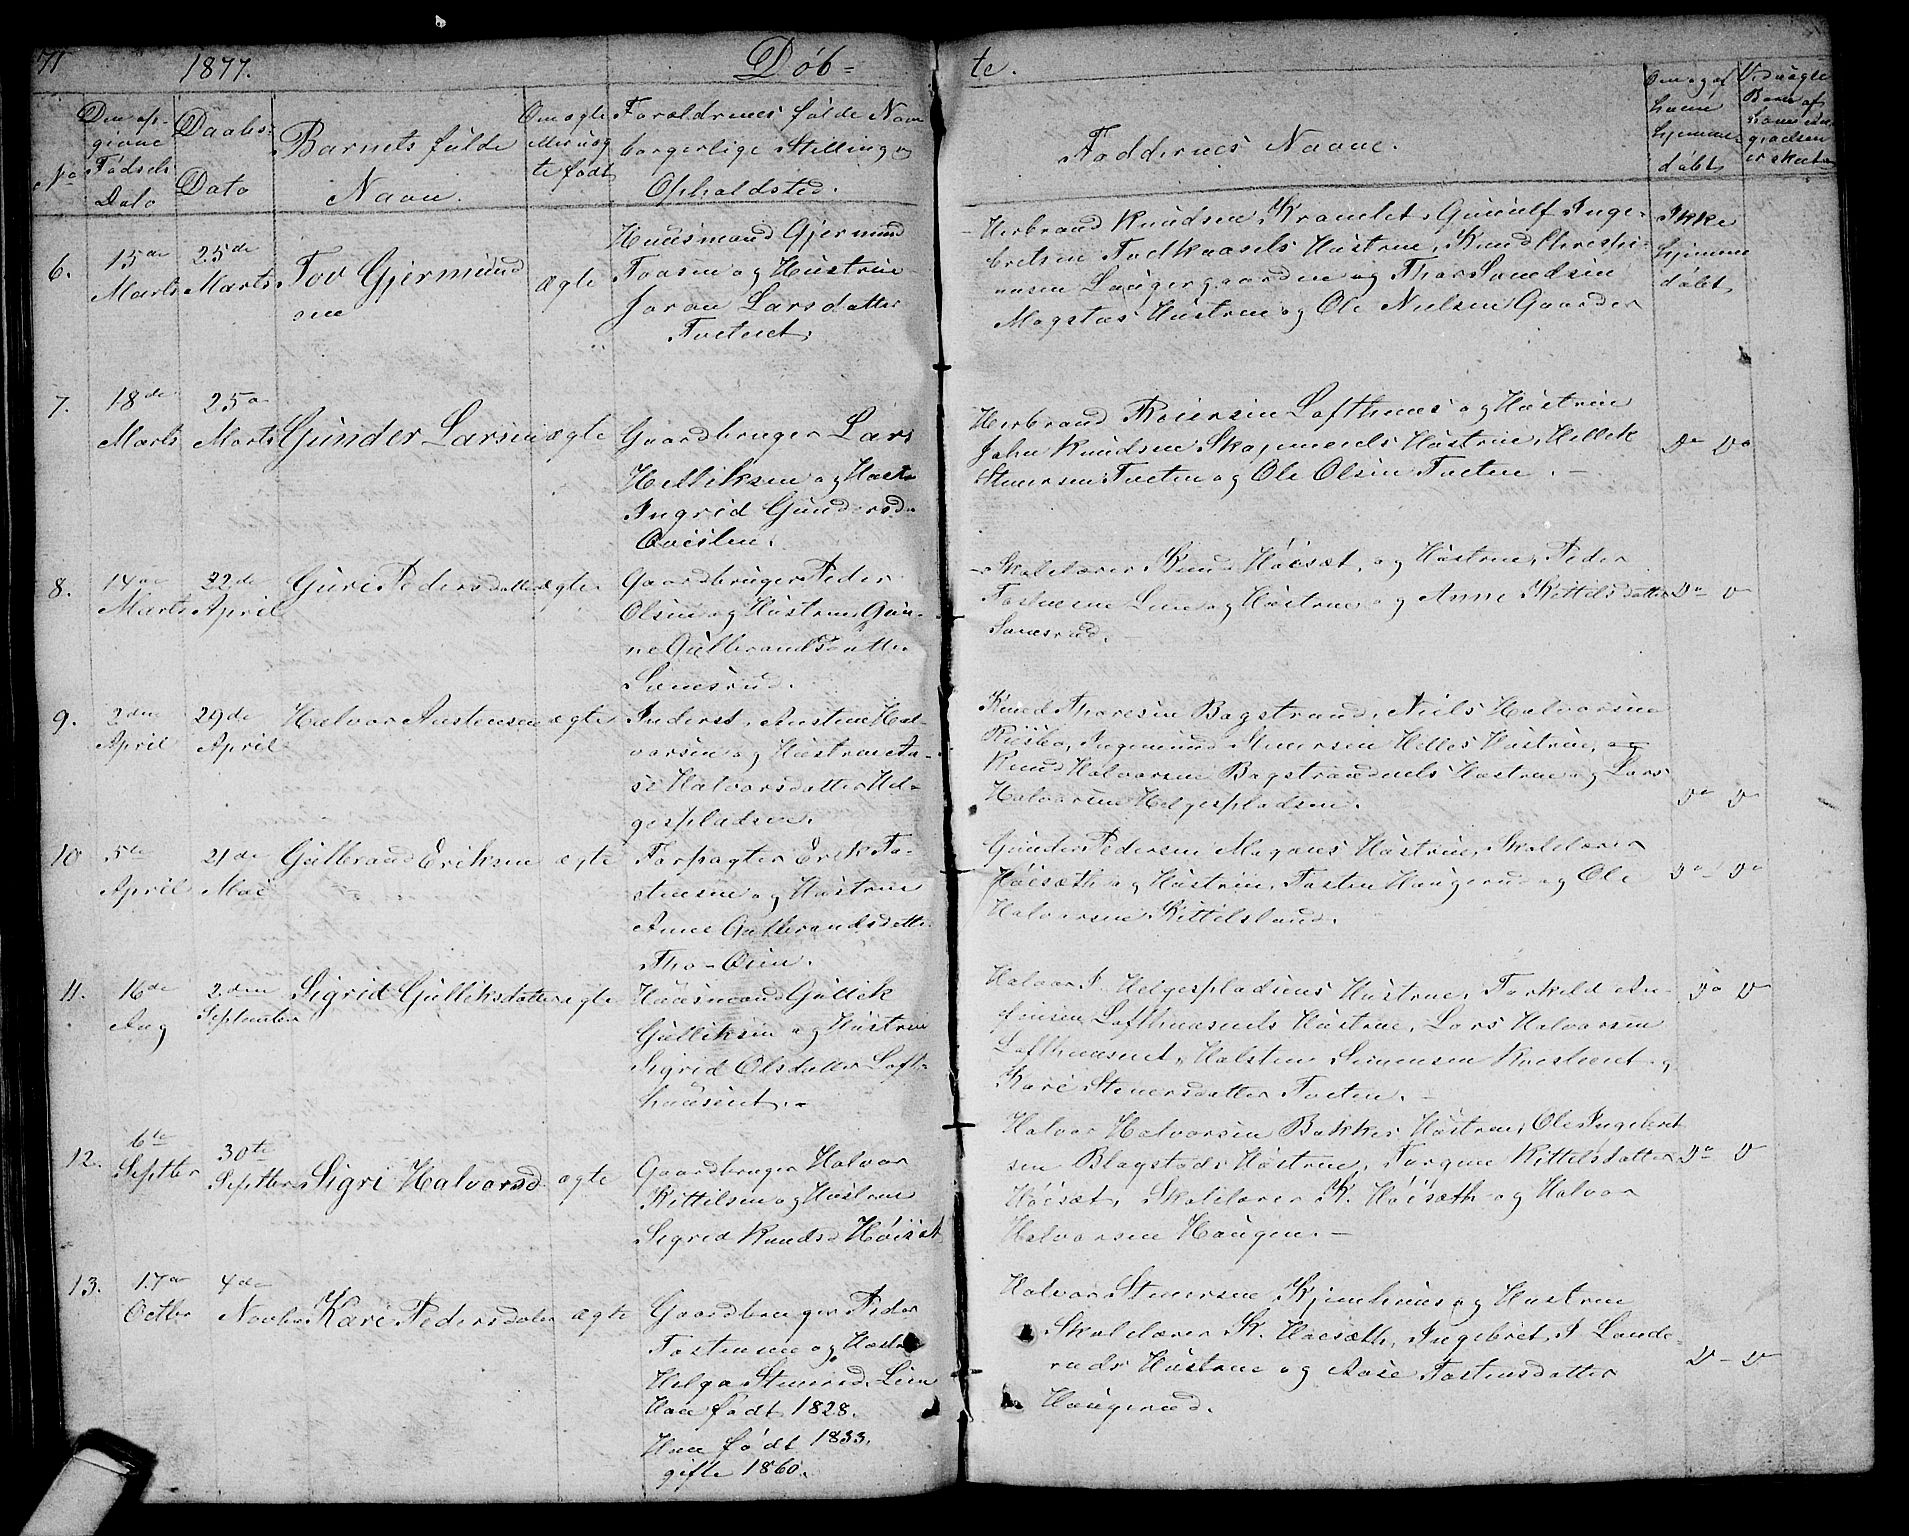 71 1877. Døb- te.
No
Den op-
givne
Fødsels
Dato
Daabs-
Dato
Barnets fulde
Navn.
Om ægte
eller uæg
te født
Forældrenes fulde Navn
borgerlige Stilling og
Opholdsted.
Faddernes Navne.
hjemme
døbt
6.
15de
Marts
25de
Marts
Tov Gjermund
sen
ægte
Huusmand Gjermund
Taasen og Hustrue
Joran Larsdatter
Tvetenet
Herbrand Knudsen Kravlet, Gunulf Inge-
bretsen Hustrue, Knud
Laugergaarden og Thor
Hustrue og Ole Nielsen Gaarder
Ikke
hjemme
døbt
7.
18de
Marts
25de
Marts
Gunder Larsen
ægte
Gaardbruger Lars
Helliksen og Hust.
Ingrid Gundersd.
Herbrand Lofthuus og Hustrue
John Knudsen Hustrue, Hellik
Steenersen Tveten og Ole Olsen Tveten.
Do Do
8.
14de
Marts
22de
April
Guri Pedersdatter
ægte
Gaardbruger Peder
Olsen og Hustrue Gun-
ne Gulbrandsdatter
Skolelærer Knud Høisæt og Hustrue, Peder
Tostensen Lien og Hustrue og Anne Kittilsdatter
Do D
9.
2den
April
29de
April
Halvor Austensen
ægte
Inderst, Austen Hal-
vorsen og Hustrue Aa-
se Halvorsdatter Hel-
gespladsen.
Knud Thoresen Bagstrand, Niels Halvorsen
Ingemund Steenersen Helles Hustrue, og
Knud Halvorsen Bagstrandnels Hustrue og Lars
Halvorsen Helgespladsen.
Do D
10
5te
April
21de
Mai
Gulbrand Eriksen
ægte
Forpagter Erik To-
stensen og Hustrue
Anne Gulbrandsdatter
Gunder Pedersen Hustrue, Skolelærer
Høisæth og Hustrue, Tosten Haugerud og Ole
Halvorsen Kittilsland.
Do Do
11.
16de
Aug
2.den
September
Sigrid Gulliksdatter
ægte
Huusmand Gullik
Gulliksen og Hustrue
Sigrid Olsdatter Loft-
huusent.-
Halvor I. Helgespladsens Hustrue, Torkild An-
finsen Lofthuusnels Hustrue, Lars Halvorsen
Lofthuusent, Halsten og
Kari Steenersdatter Tveten.-
Do D
12.
6te
Septbr
30te
Septbr
Sigri Halvorsd
ægte
Gaardbruger Halvor
Kittilsen og Hustrue
Sigrid Knudsd Høisæt
Halvor Halvorsen Bakkes Hustrue, Ole Ingebret
sen Blagstads Hustrue, Jorgine Kittilsdatter
Høisæt, Skolelærer K. Høisæth og Halvor
Halvorsen Haugen.-
Do D
13.
17de
Octbr
4de
Novbr
Kari Pedersdatter
ægte
Gaardbruger Peder
Tostensen og Hustrue
Helga Steenersd. Lien
Han født 1828.
Hun født 1833.
gifte 1860.
Halvor Steenersen Kjemhuus og Hustrue
Skolelærer K. Høisæth, Ingebret I Lande-
ruds Hustrue og Aase Tostensdatter
Haugerud.
D - D